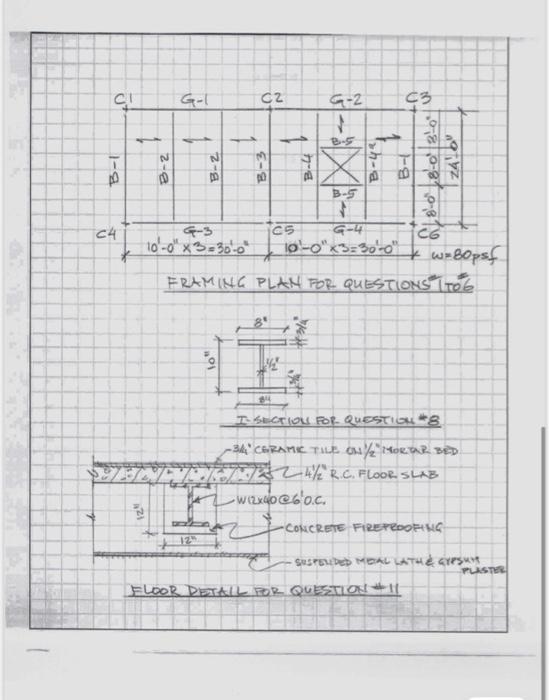 C1 G-1 C2 G-2 C3
B-1 B-2 B-2 B-3 B-4 B-5 B-4 B-1 8'-0" 8'-0" 8'-0" 24'-0"
B-5
C4 G-3 C5 G-4 C6
10'-0" x3=30'-0" 10'-0" x3=30'-0" w=80psf
FRAMING PLAN FOR QUESTIONS #1 TO #6
8" 3/4"
10" 1/2"
3/4"
8"
I-SECTION FOR QUESTION #8
3/4" CERAMIC TILE ON 1/2" MORTAR BED
4 1/2" R.C. FLOOR SLAB
W12x40@6'O.C.
12"
CONCRETE FIREPROOFING
12"
SUSPENDED METAL LATH & GYPSUM
PLASTER
FLOOR DETAIL FOR QUESTION #11